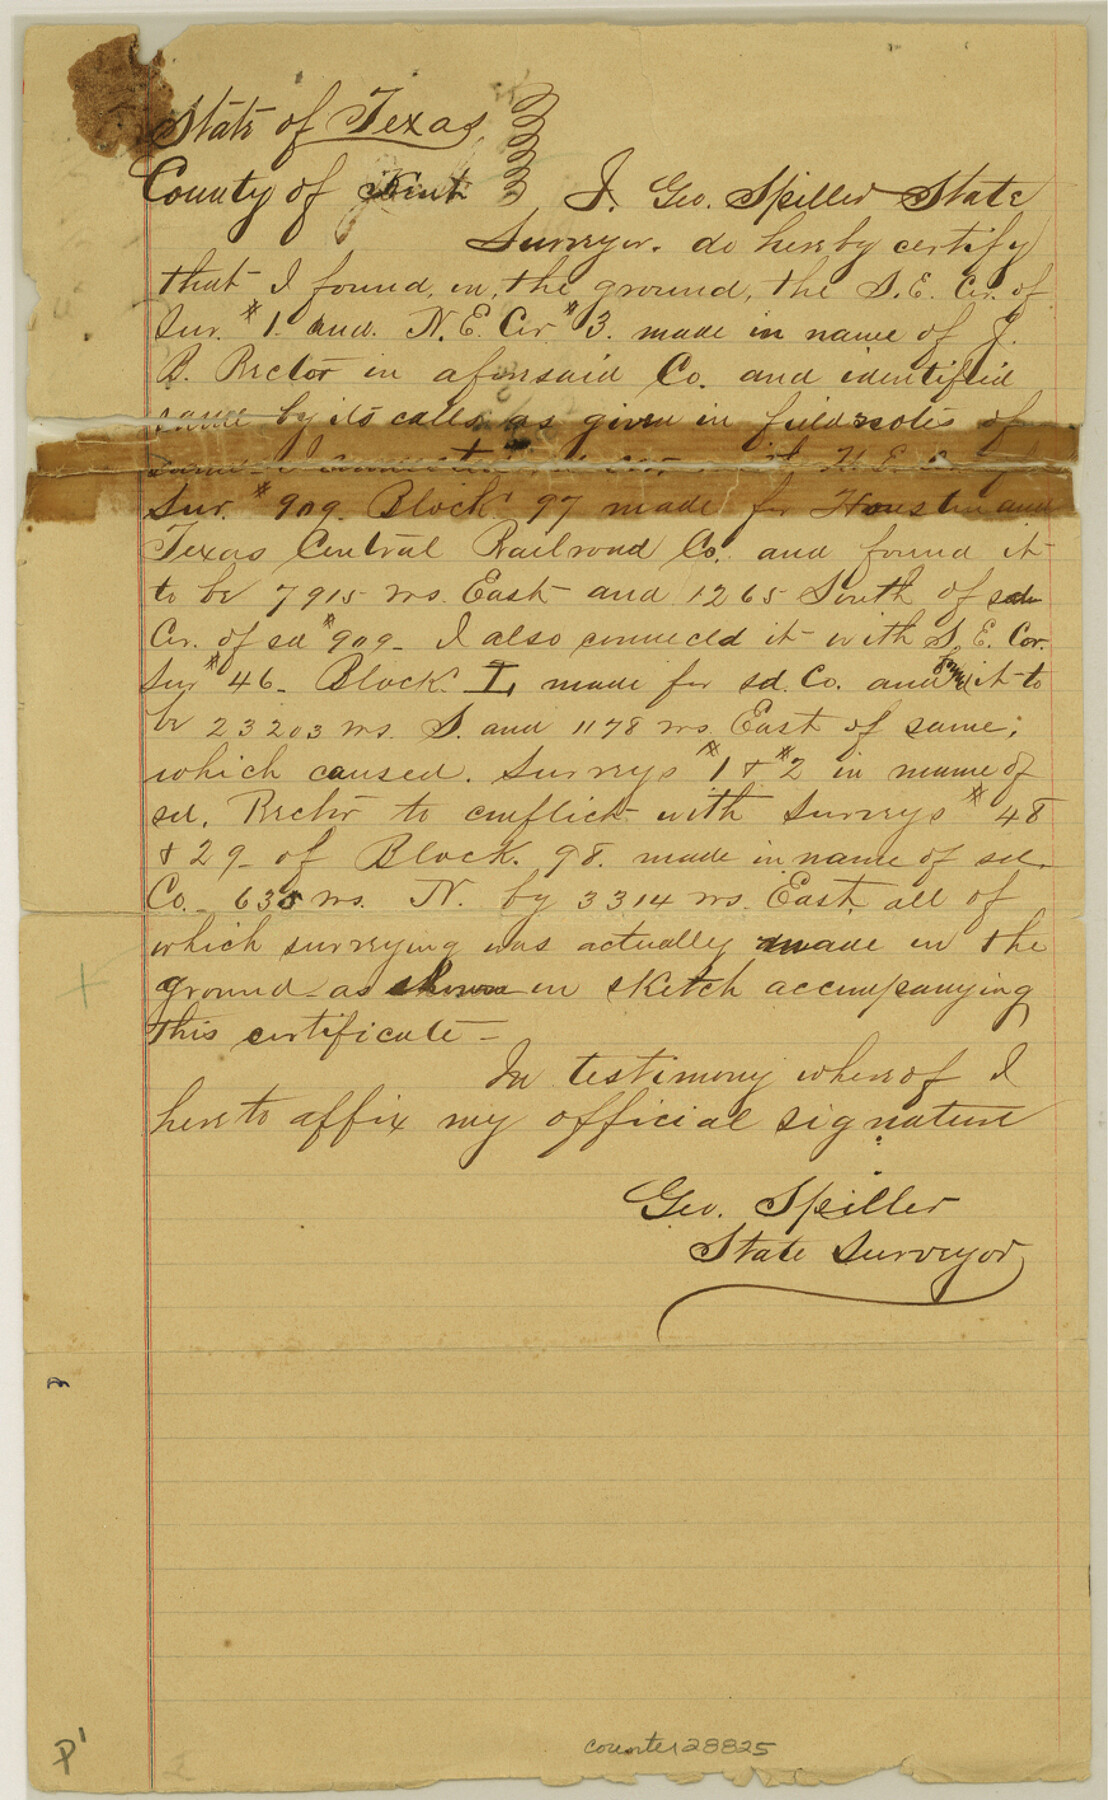 State of Texas
County of Kent I. Geo. Spiller State
Surveyor. do hereby certify
that I found, on, the ground, the S.E. Cor. of
Sur. #1. and. N.E. Cor #3. made in name of J.
B. Rector in aforesaid Co. and identified
same by its calls as given in fieldnotes of
same
Sur. #909. Block 97 made for Houston and
Texas Central Railroad Co. and found it
to be 7915 vrs. East and 1265 South of sd
Cor. of sd #909 - I also connected it with S. E. Cor.
Sur #46 - Block. I, made for sd. Co. and found it to
be 23203 vrs. S. and 1178 vrs. East of same;
which caused. Surveys #1 + #2 in name of
sd. Rector to conflict with Surveys #48
+ 29 - of Block. 98. made in name of sd.
Co. - 635 vrs. N. by 3314 vrs. East, all of
which surveying was actually made on the
ground - as shown on sketch accompanying
this certificate -
In testimony whereof I
hereto affix my official signature
Geo. Spiller
State Surveyor
P1
counter 28825